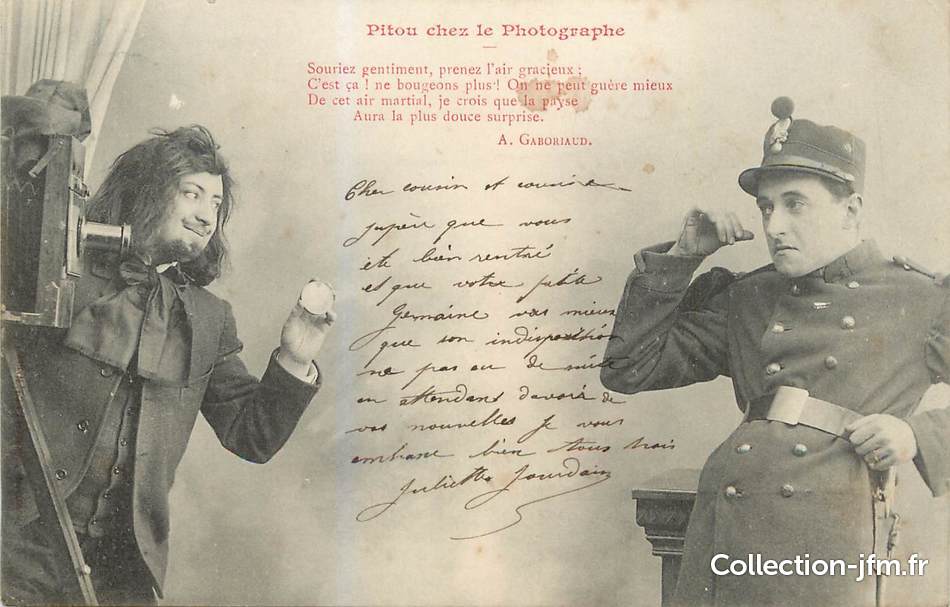 Pitou chez le Photographe
Souriez gentiment, prenez l'air gracieux ;
C'est ça ! ne bougeons plus ! On ne peut guère mieux
De cet air martial, je crois que la payse
Aura la plus douce surprise.
A. Gaboriaud.
Cher cousin et cousine
jspère que vous
ete bien rentré
et que votre petite
Germaine vas mieux
que son indisposition
ne pas eu de suite
en attendant davoir de
vos nouvelles je vous
embrase bien tous trois
Juliette Jourdain
Collection-jfm.fr